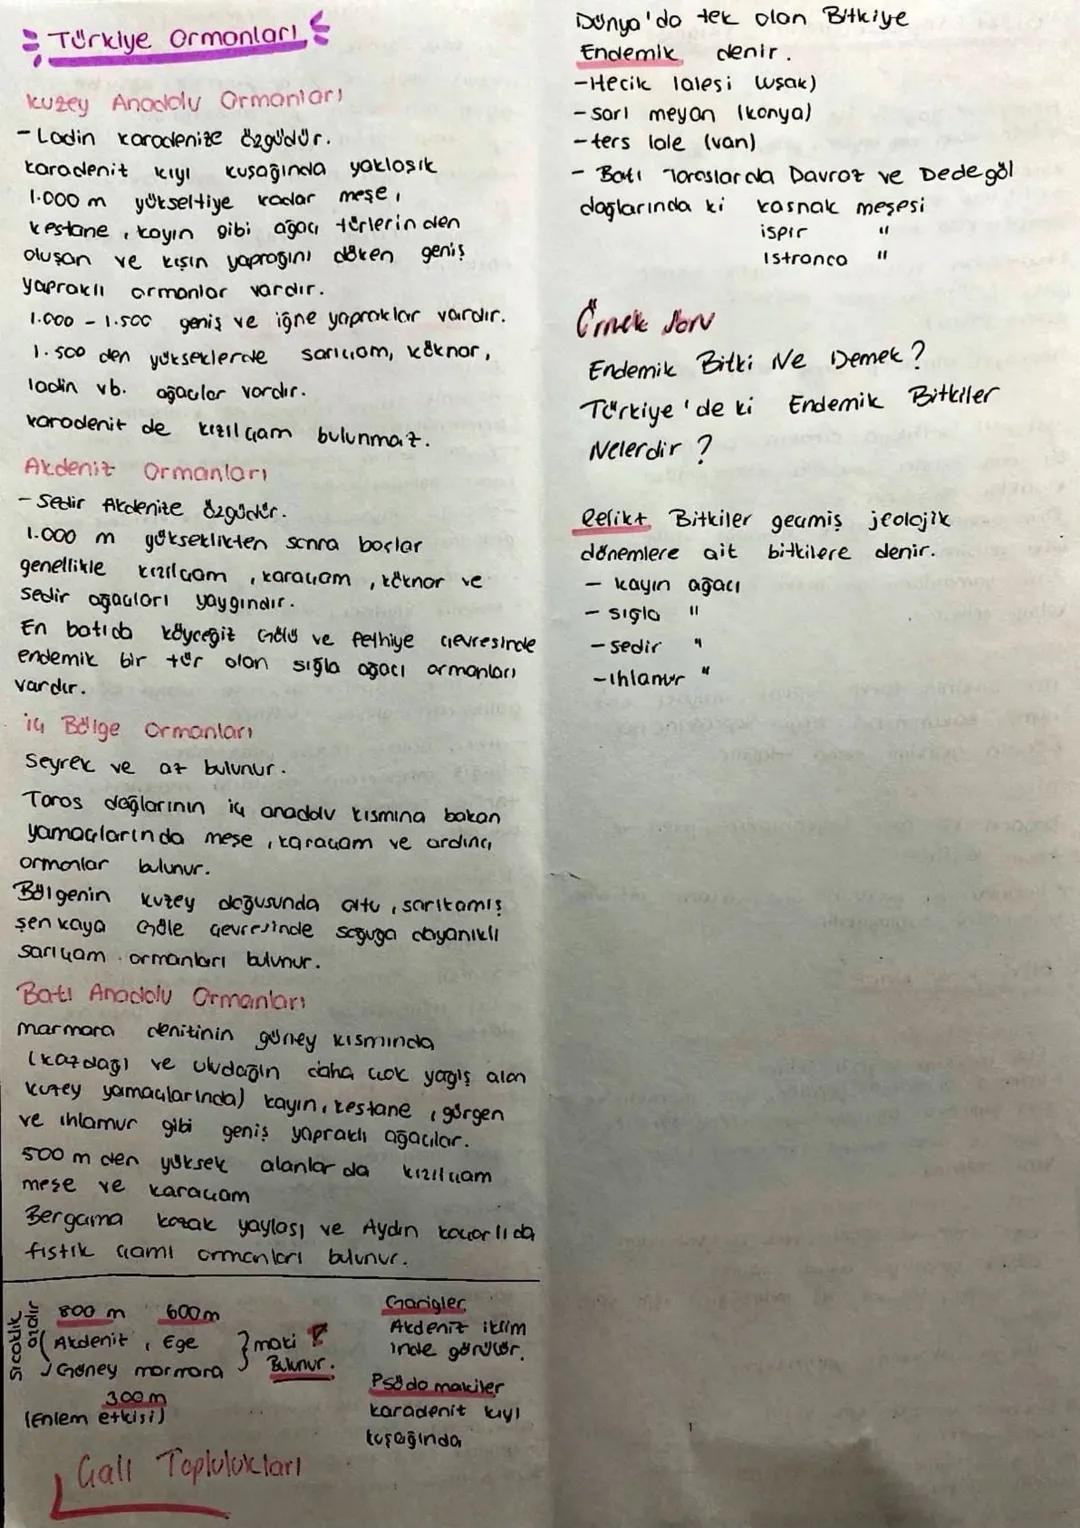 Türkiye Ormanları
Kuzey Anadolu Ormanları
- Ladin karadenize özgüdür.
karadeniz kıyı kuşağında yaklaşık
1.000 m yükseltiye kadar meşe,
kestane, kayın gibi ağaç türlerinden
oluşan ve kışın yaprağını döken geniş
yapraklı ormanlar vardır.
1.000 - 1.500 geniş ve iğne yapraklar vardır.
1.500 den yükseklerde sarıçam, köknar,
ladin vb. ağaçlar vardır.
karadeniz de kızılçam bulunmaz.
Akdeniz Ormanları
- Sedir Akdenize özgüdür.
1.000 m yükseklikten sonra başlar
genellikle kızılçam, karaçam, köknar ve
sedir ağaçları yaygındır.
En batıda köyceğiz Gölü ve fethiye çevresinde
endemik bir tür olan sığla ağacı ormanları
vardır.
iç Bölge Ormanları
Seyrek ve az bulunur.
Toros dağlarının iç anadolu kısmına bakan
yamaçlarında meşe, karaçam ve ardınç
ormanlar bulunur.
Bölgenin kuzey doğusunda oltu, sarıkamış
şenkaya Göle çevresinde soğuğa dayanıklı
sarıçam ormanları bulunur.
Batı Anadolu Ormanları
marmara denizinin güney kısmında
(kazdağı ve uludağın daha çok yağış alan
kuzey yamaçlarında) kayın, kestane, gürgen
ve ıhlamur gibi geniş yapraklı ağaçlar.
500 m den yüksek alanlarda kızılçam
meşe ve karaçam
Bergama kozak yaylası ve Aydın koçarlıda
fıstık çamı ormanları bulunur.
Sıcaklık azalır
800 m 600m
Akdeniz, Ege
Güney marmara
} maki
Bulunur.
300 m
(Enlem etkisi)
Garigler
Akdeniz iklim
inde görülür.
Psödo makiler
karadeniz kıyı
kuşağında
Çalı Toplulukları
Dünya'da tek olan Bitkiye
Endemik denir.
- Hecik lalesi (uşak)
- sarı meyan (konya)
- ters lale (van)
- Batı Toroslarda Davraz ve Dedegöl
dağlarında ki kasnak meşesi
ispir "
Istranca "
Örnek Soru
Endemik Bitki Ne Demek?
Türkiye'de ki Endemik Bitkiler
Nelerdir?
Relikt Bitkiler geçmiş jeolojik
dönemlere ait bitkilere denir.
- kayın ağacı
- sığla "
- sedir "
- ıhlamur "